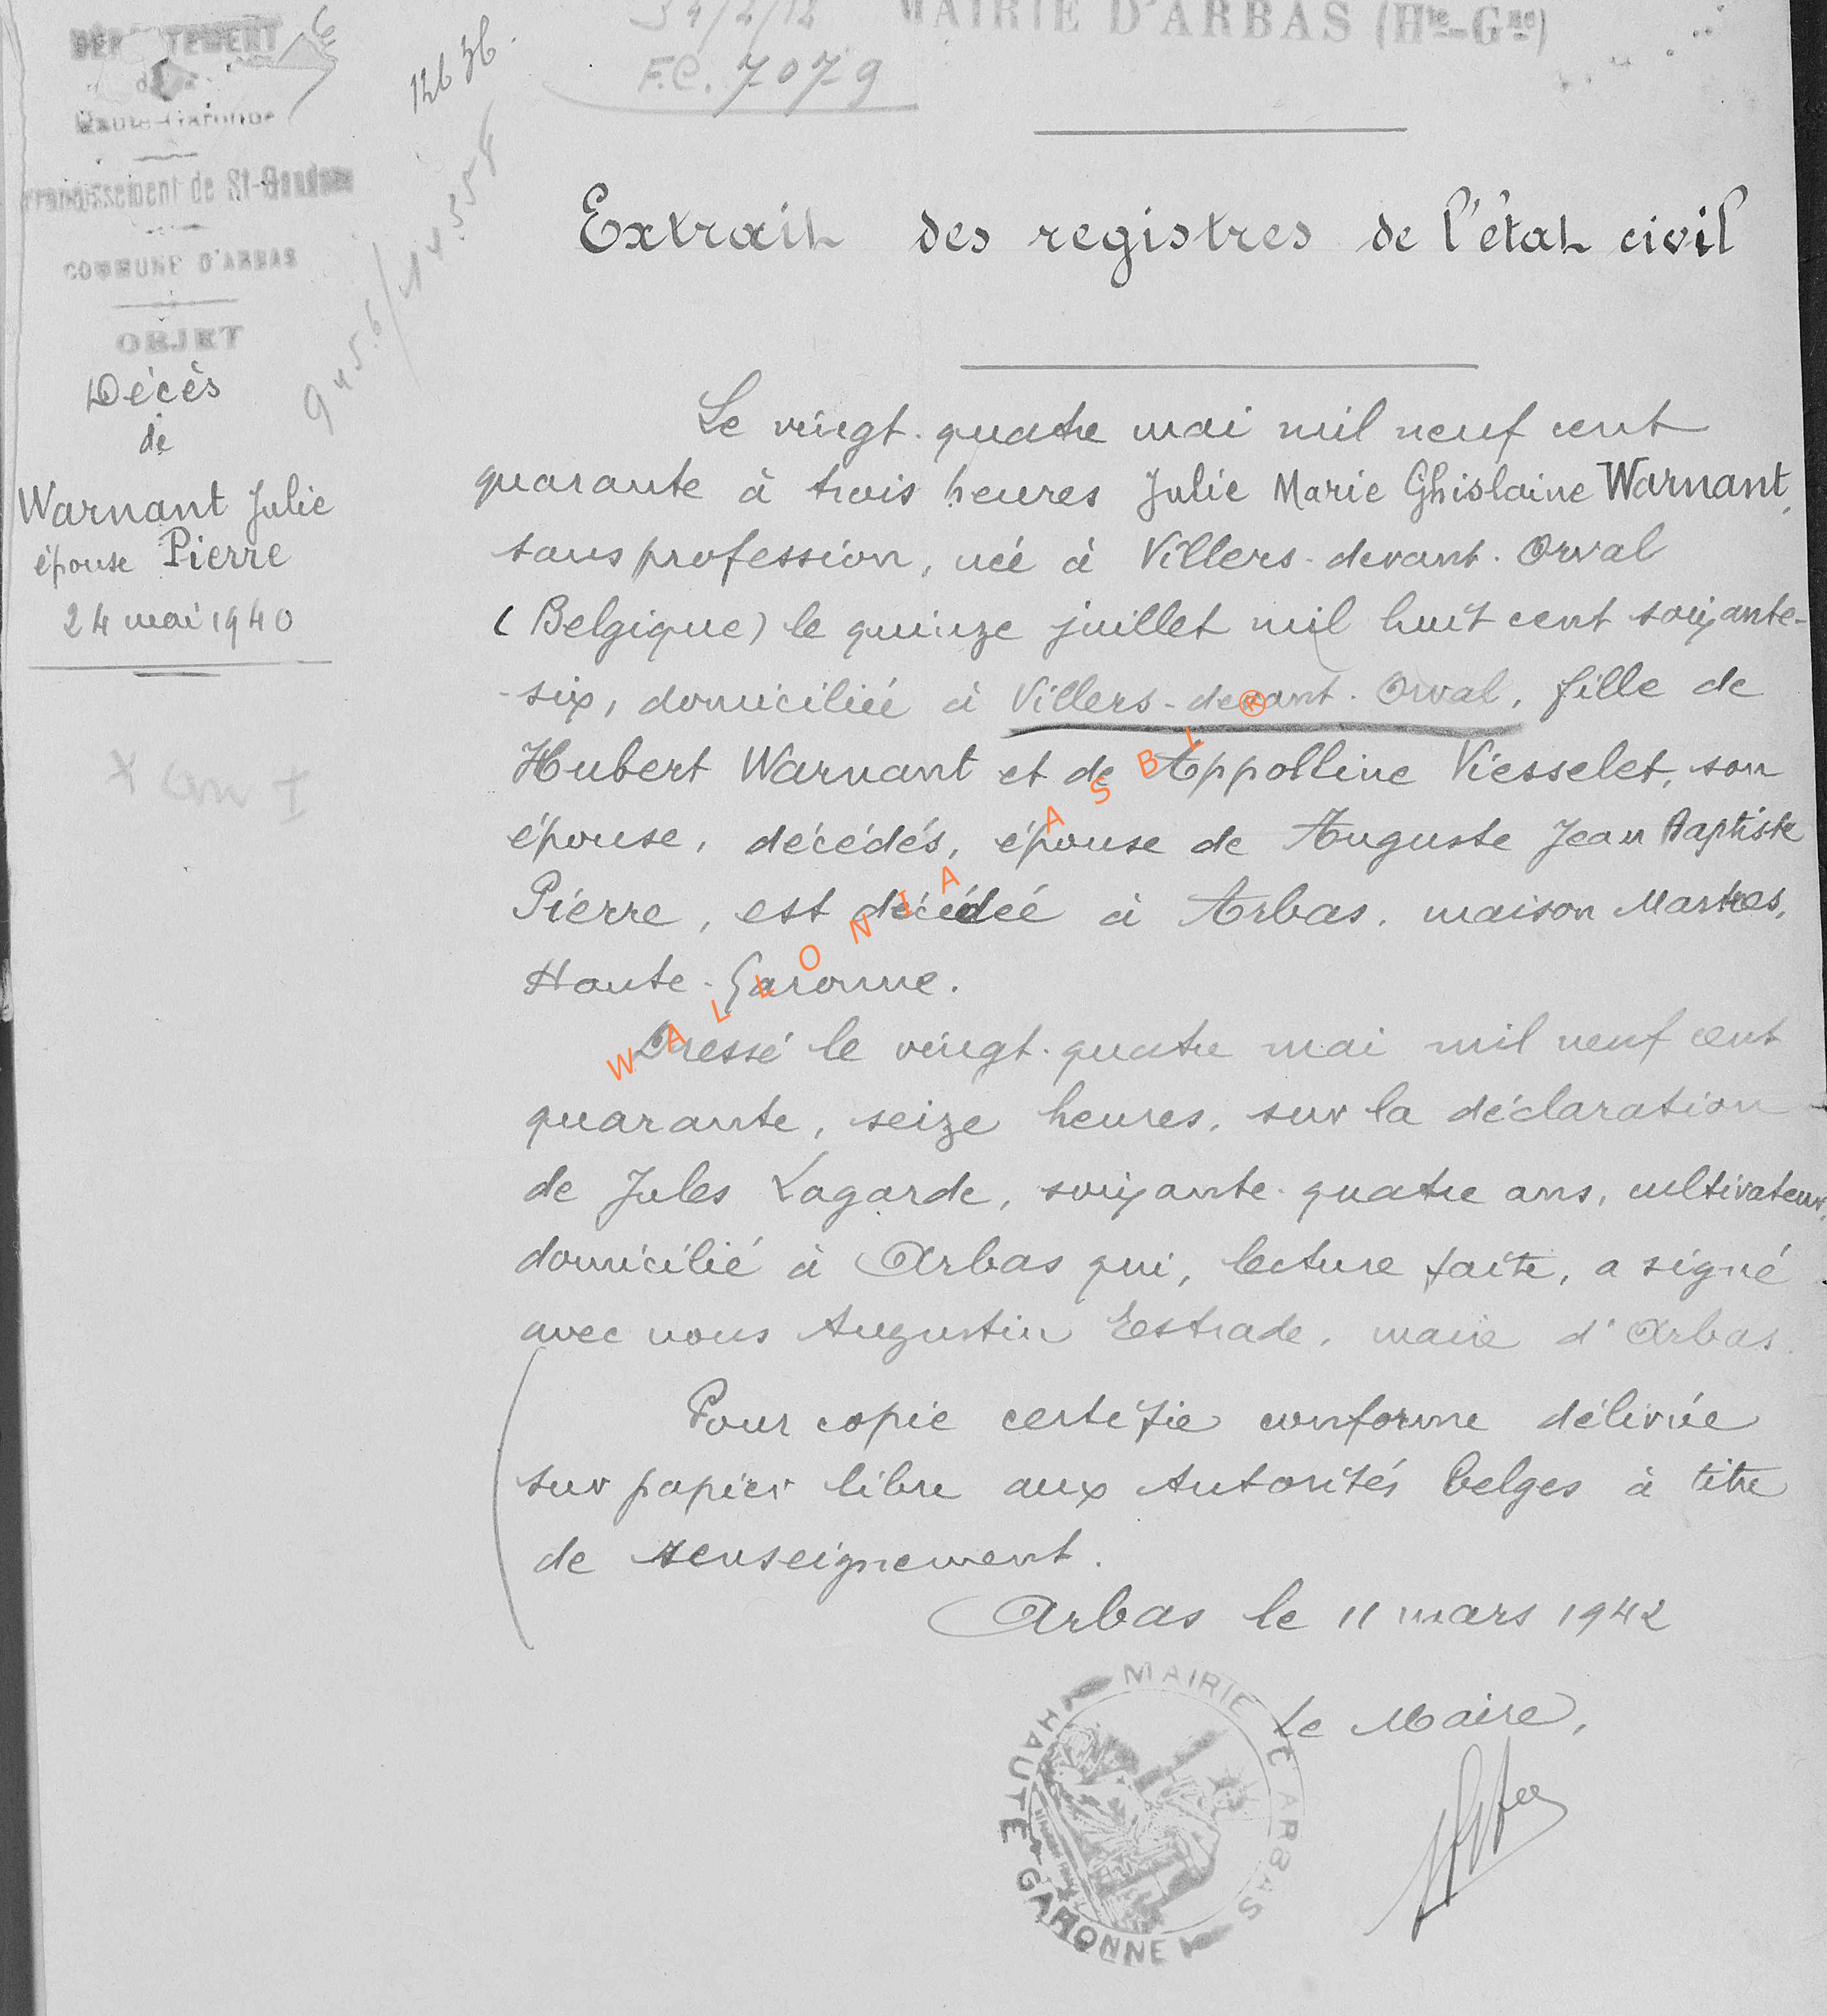 MAIRIE D'ARBAS (Hte-Gne)
F.C. 7079
12636.
Haute-Garonne
COMMUNE D'ARBAS
OBJET
Décès
de
Warnant Julie
épouse Pierre
24 mai 1940
Extrait des registres de l'état civil
Le vingt-quatre mai mil neuf cent
quarante à trois heures Julie Marie Ghislaine Warnant,
sans profession, née à Villers-devant-Orval
(Belgique) le quinze juillet mil huit cent soixante-
-six, domiciliée à Villers-devant-Orval, fille de
Hubert Warnant et de Appolline Viesselet, son
épouse, décédés, épouse de Auguste Jean Baptiste
Pierre, est décédée à Arbas, maison Martres,
Haute-Garonne.
Dressé le vingt-quatre mai mil neuf cent
quarante, seize heures, sur la déclaration
de Jules Lagarde, soixante-quatre ans, cultivateur,
domicilié à Arbas qui, lecture faite, a signé
avec nous Augustin Estrade, maire d'Arbas.
Pour copie certifie conforme délivrée
sur papier libre aux Autorités belges à titre
de renseignement.
Arbas le 11 mars 1942
Le Maire,
MAIRIE D'ARBAS
HAUTE GARONNE
WALLONIA ASBL ®